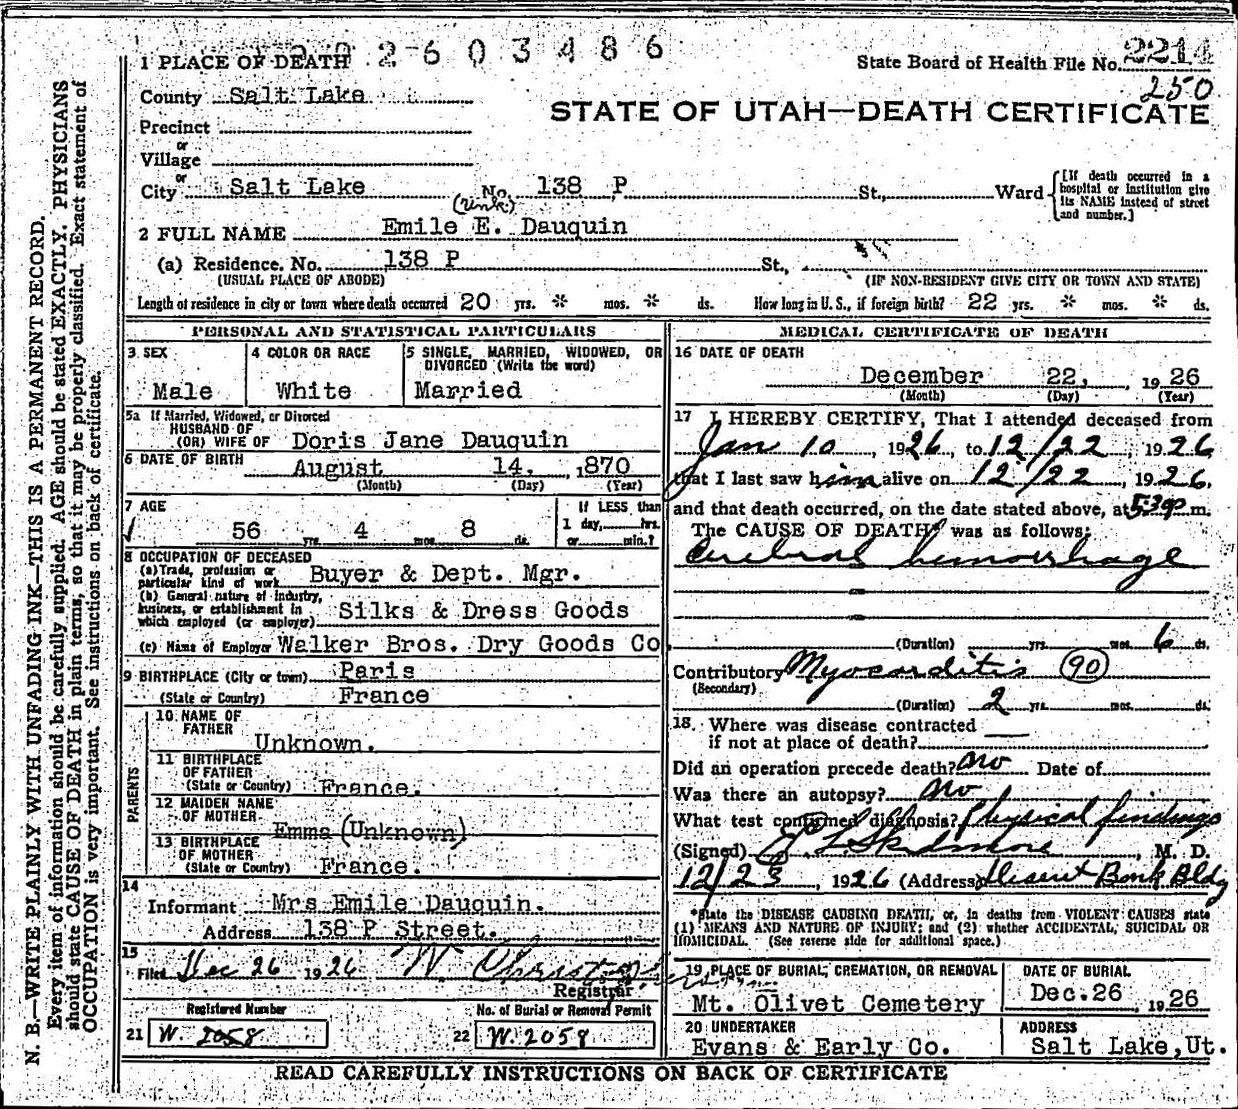 2603486
1 PLACE OF DEATH
State Board of Health File No. 2214
250
County Salt Lake
STATE OF UTAH—DEATH CERTIFICATE
Precinct
or
Village
or
City Salt Lake No. 138 P St., Ward
[If death occurred in a hospital or institution give its NAME instead of street and number.]
2 FULL NAME Emile E. Dauquin
(a) Residence. No. 138 P St.,
(USUAL PLACE OF ABODE) (IF NON-RESIDENT GIVE CITY OR TOWN AND STATE)
Length of residence in city or town where death occurred 20 yrs. * mos. * ds. How long in U. S., if foreign birth? 22 yrs. * mos. * ds.
PERSONAL AND STATISTICAL PARTICULARS
3 SEX
Male
4 COLOR OR RACE
White
5 SINGLE, MARRIED, WIDOWED, OR
DIVORCED (Write the word)
Married
5a If Married, Widowed, or Divorced
HUSBAND OF
(OR) WIFE OF Doris Jane Dauquin
6 DATE OF BIRTH
August 14, 1870
(Month) (Day) (Year)
7 AGE
56 yrs. 4 mos. 8 ds.
If LESS than
1 day, hrs.
or min.?
8 OCCUPATION OF DECEASED
(a) Trade, profession or
particular kind of work Buyer & Dept. Mgr.
(b) General nature of industry,
business, or establishment in
which employed (or employer) Silks & Dress Goods
(c) Name of Employer Walker Bros. Dry Goods Co.
9 BIRTHPLACE (City or town) Paris
(State or Country) France
PARENTS
10 NAME OF
FATHER
Unknown.
11 BIRTHPLACE
OF FATHER
(State or Country) France.
12 MAIDEN NAME
OF MOTHER
Emma (Unknown)
13 BIRTHPLACE
OF MOTHER
(State or Country) France.
14
Informant Mrs Emile Dauquin.
Address 138 P Street.
15
Filed Dec 26 1926
Registrar
Registered Number
21 W. 2058
No. of Burial or Removal Permit
22 W. 2058
MEDICAL CERTIFICATE OF DEATH
16 DATE OF DEATH
December 22, 1926
(Month) (Day) (Year)
17 I HEREBY CERTIFY, That I attended deceased from
Jan 10, 1926, to 12/22, 1926
that I last saw him alive on 12/22, 1926,
and that death occurred, on the date stated above, at 5:30 p m.
The CAUSE OF DEATH* was as follows:
Cerebral hemorrhage
(Duration) yrs. mos. 6 ds.
Contributory Myocarditis (90)
(Secondary)
(Duration) 2 yrs. mos. ds.
18. Where was disease contracted
if not at place of death?
Did an operation precede death? no Date of
Was there an autopsy? no
What test confirmed diagnosis? Physical findings
(Signed) Skidmore, M. D.
12/23, 1926 (Address) Deseret Bank Bldg
*State the DISEASE CAUSING DEATH, or, in deaths from VIOLENT CAUSES state
(1) MEANS AND NATURE OF INJURY; and (2) whether ACCIDENTAL, SUICIDAL OR
HOMICIDAL. (See reverse side for additional space.)
19 PLACE OF BURIAL, CREMATION, OR REMOVAL
Mt. Olivet Cemetery
DATE OF BURIAL
Dec. 26 1926
20 UNDERTAKER
Evans & Early Co.
ADDRESS
Salt Lake, Ut.
READ CAREFULLY INSTRUCTIONS ON BACK OF CERTIFICATE
N. B.—WRITE PLAINLY WITH UNFADING INK—THIS IS A PERMANENT RECORD.
Every item of information should be carefully supplied. AGE should be stated EXACTLY. PHYSICIANS
should state CAUSE OF DEATH in plain terms, so that it may be properly classified. Exact statement of
OCCUPATION is very important. See instructions on back of certificate.